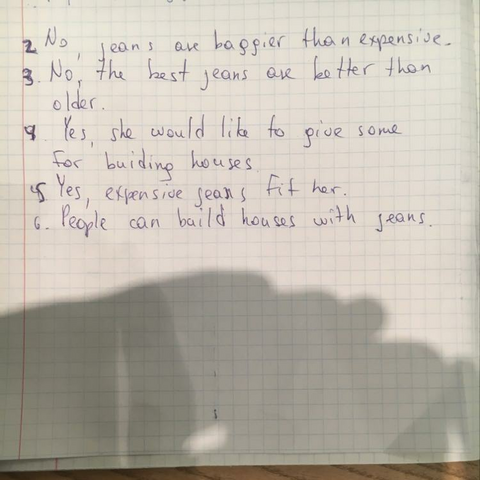 2. No, jeans are baggier than expensive.
3. No, the best jeans are better than
older.
4. Yes, she would like to give some
for buiding houses
5. Yes, expensive jeans fit her.
6. People can build houses with jeans.